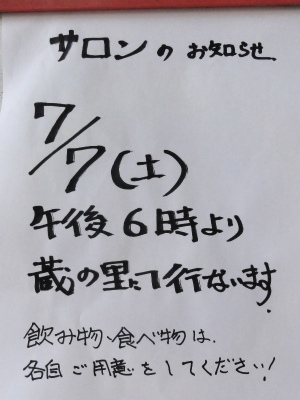 サロンのお知らせ
7/7(土)
午後6時より
蔵の里にて行ないます
飲み物、食べ物は、
各自ご用意をしてください!